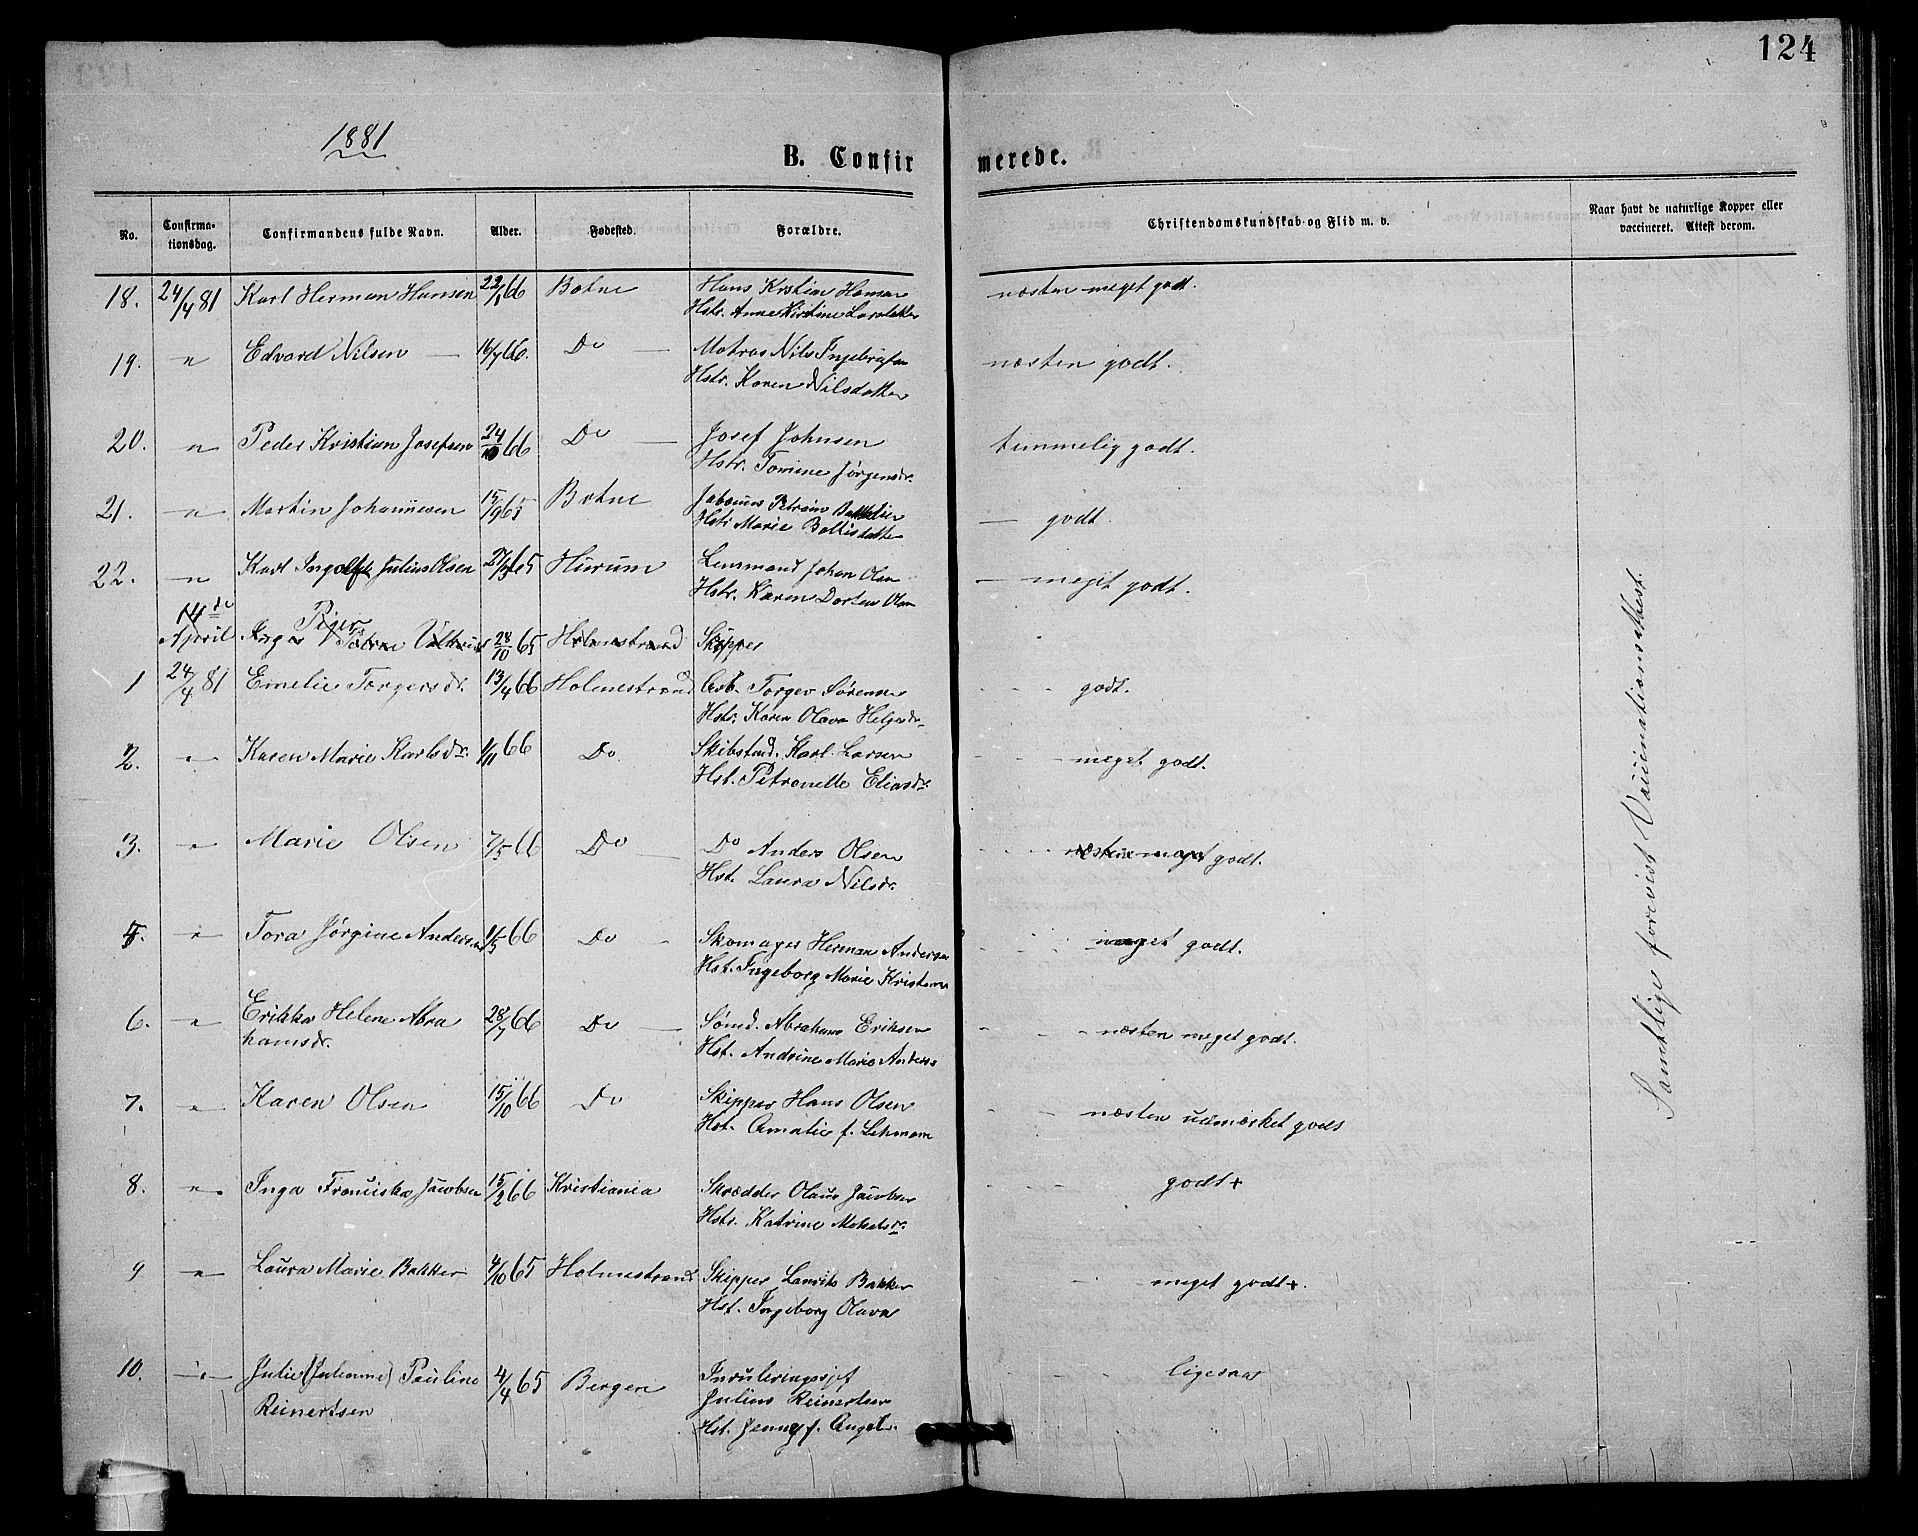 124
1881
B. Confir merede.
No. Confirma-tionsdag. Confirmandens fulde Navn. Alder. Fødested. Forældre. Christendomskundskab og Flid m. v. Naar havt de naturlige Kopper eller vaccineret. Attest derom.
18. 24/4 81 Karl Herman Hansen 22/1 66 Botne Hans Kristian Hansen næsten meget godt.
Hstr. Anne Kirstine
19. " Edvard Nilsen — 16/7 66. Do — Matros Nils Ingebrigtsen næsten godt.
Hstr. Karen Nilsdatter
20. " Peder Kristian Josefsen 24/10 66 Do — Josef Johnsen temmelig godt.
Hstr. Tomine Jørgensdr.
21. " Martin Johannesen 15/9 65 Botne Johannes — godt.
Hstr Marie
22. " Karl Ingolf Julius Olsen 27/3 65 Hurum Lensmand Johan Olsen — meget godt.
Hstr. Karen Dortea Olsen
14de Piger
April Inger Petra 28/10 65 Holmestrand Skipper
1 24/4 81 Emelie Torgersdr. 13/4 66 Holmestrand Arb. Torger Sørensen - - - godt.
Hstr. Karen Olava Helgesdr.
2. " Karen Marie Karlsdr. 1/11 66 Do. Skibstmd. Karl Larsen - - - meget godt.
Hst. Petronelle Eliasdr.
3. " Marie Olsen 7/5 66 Do — Do Anders Olsen næsten meget godt.
Hst. Laura Nilsdr.
5. " Tora Jørgine Andersen 11/5 66 Do — Skomager Herman Andersen meget godt.
Hst. Ingeborg Marie
6. " Erikka Helene Abra 28/7 66 Do — Sømd. Abraham Eriksen næsten meget godt.
hamsdr. Hst. Andrine Marie Anders
7. " Karen Olsen 15/10 66 Do Skipper Hans Olsen næsten udmærket godt
Hst. Amalie f. Lehmann
8. " Inga Franciska Jacobsen 15/2 66 Kristiania Skrædder Olaus Jacobsen godt+
Hstr. Katrine
9 " Laura Marie Bakker 4/10 65 Holmestrand Skipper Lauritz Bakker meget godt+.
Hst. Ingeborg Olava
10. " Julie (Julianne) Pauline 4/4 65 Bergen ligesaa
Reinertsen Julius Reinertsen
Hst. Jenny f. Angel.
Samtlige forevist Vaccinationsattest.